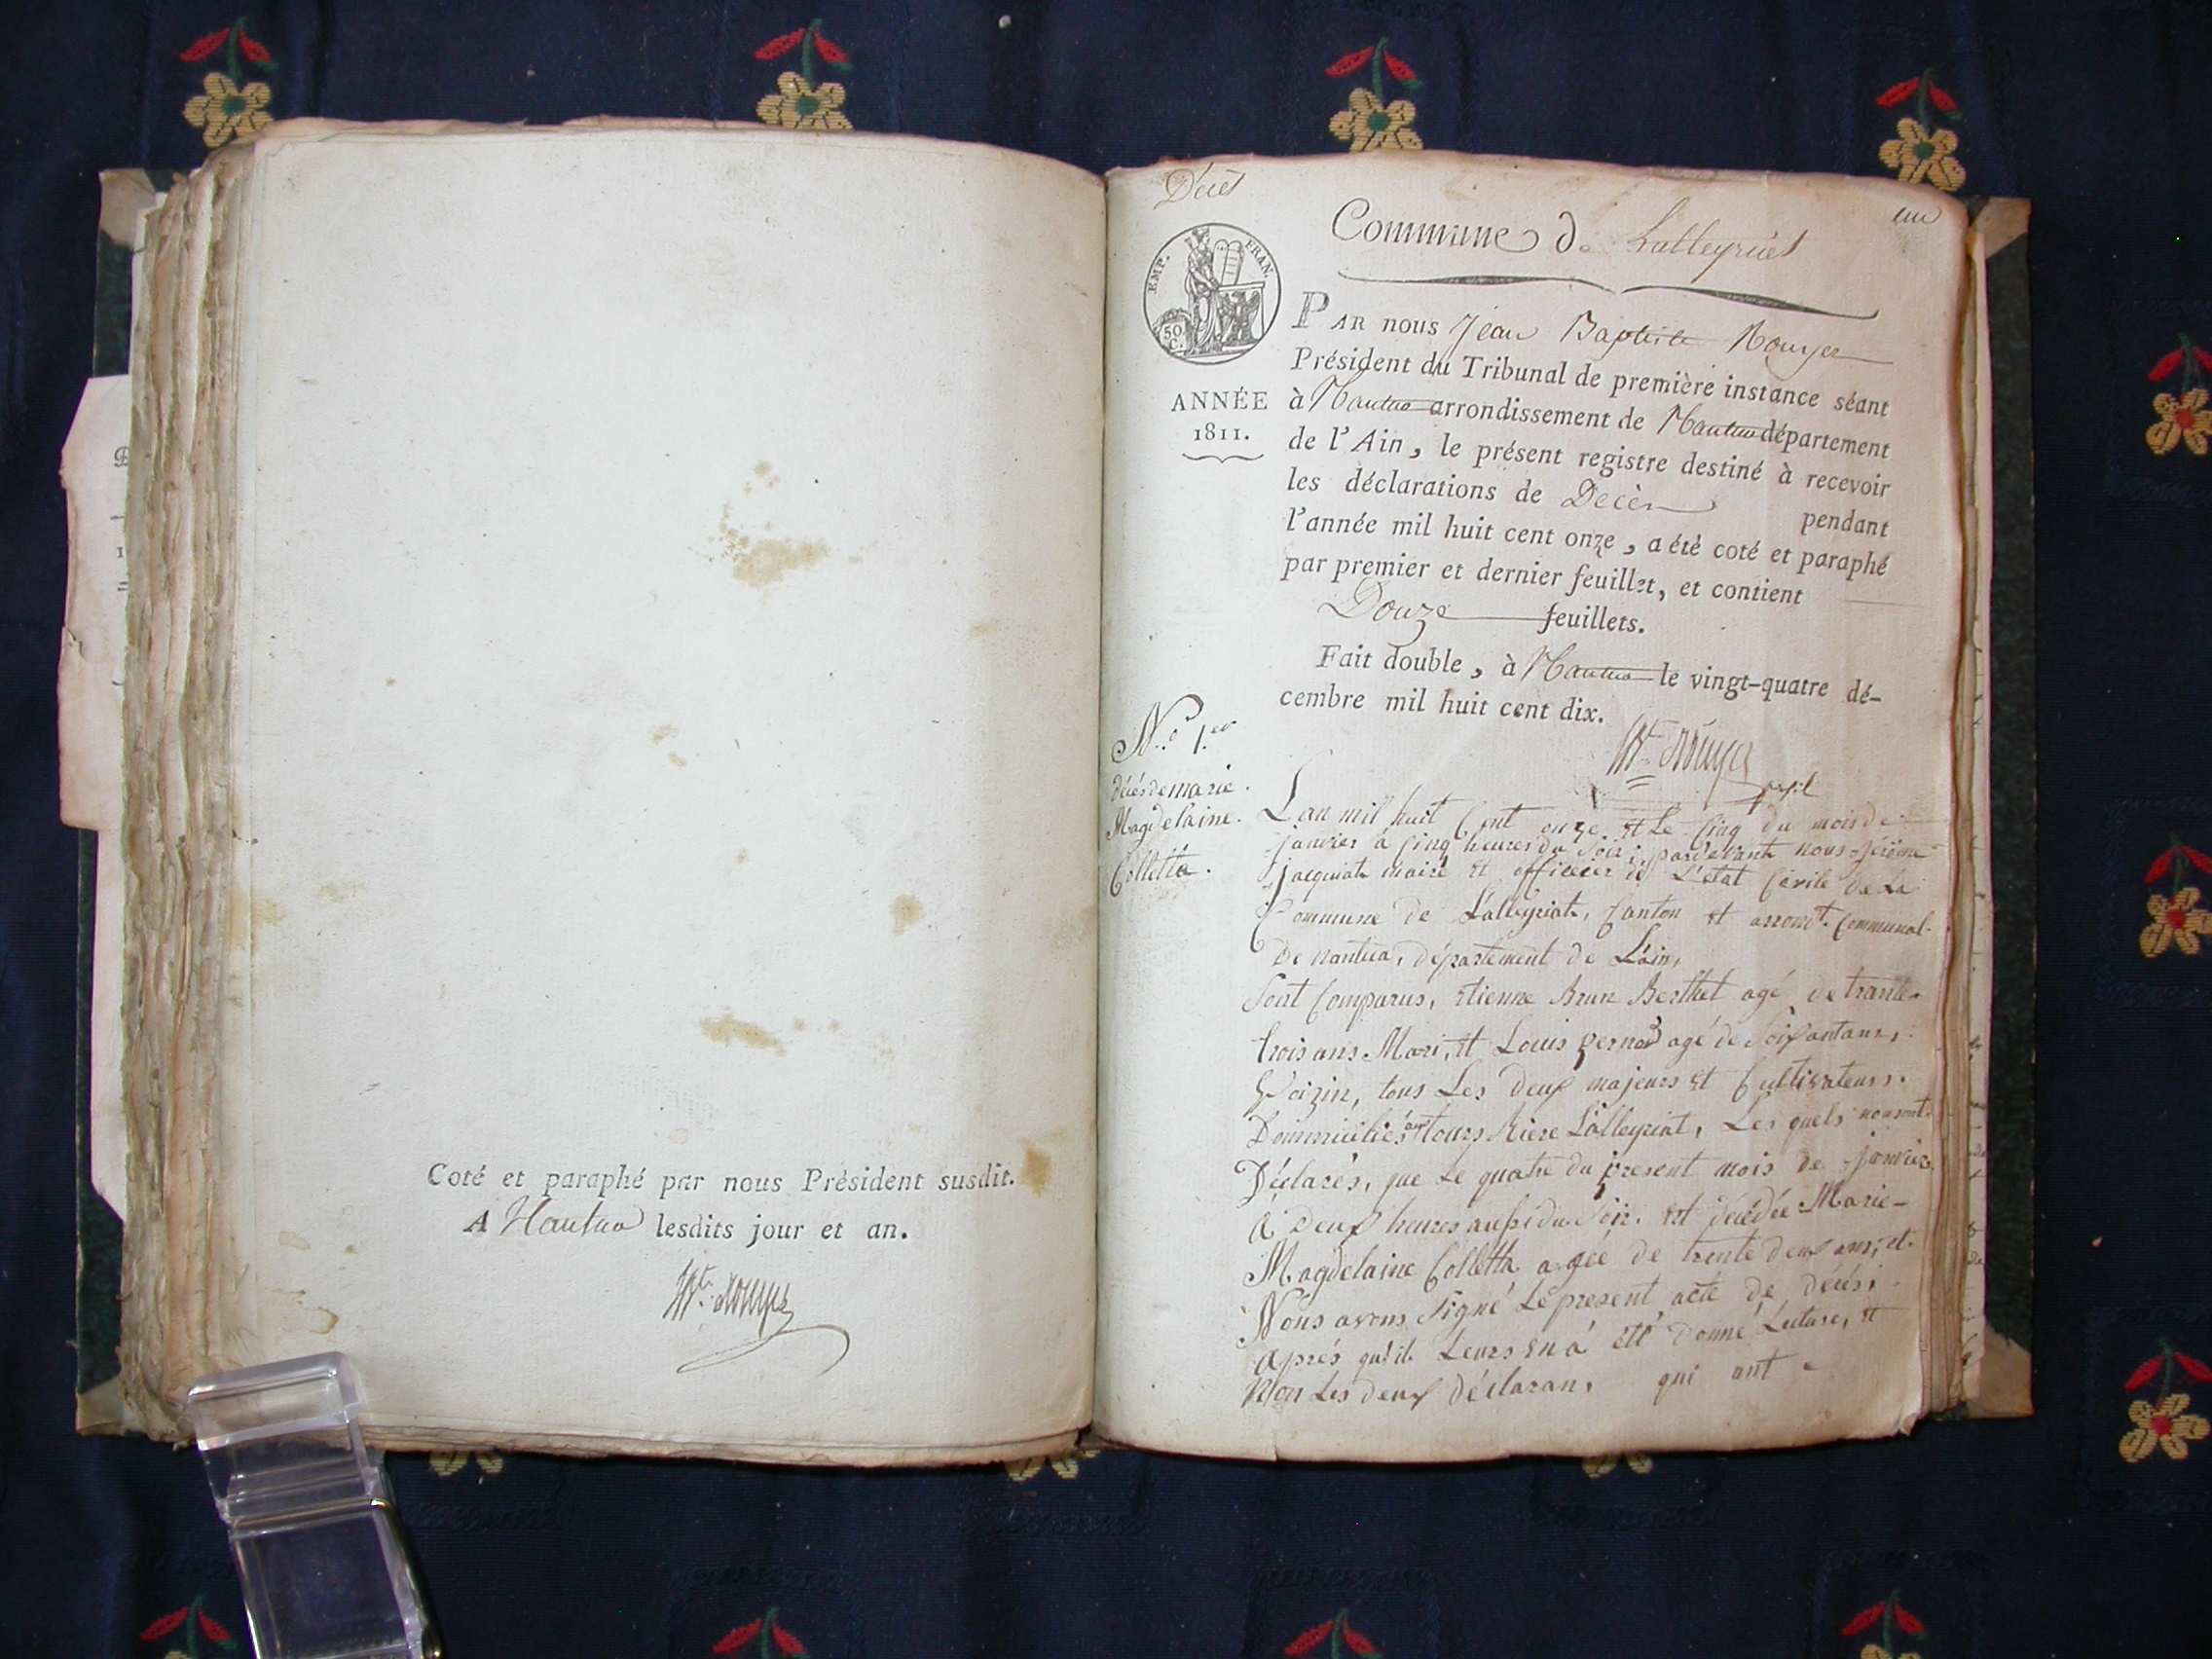 Coté et paraphé par nous Président susdit.
A Nantua lesdits jour et an.
Décès
un
Commune de Lalleyriat
EMP. FRAN.
50 C.
ANNÉE
1811.
PAR nous Jean Baptiste Rouyer
Président du Tribunal de première instance séant
à Nantua arrondissement de Nantua département
de l'Ain, le présent registre destiné à recevoir
les déclarations de Décès pendant
l'année mil huit cent onze, a été coté et paraphé
par premier et dernier feuillet, et contient
Douze feuillets.
Fait double, à Nantua le vingt-quatre dé-
cembre mil huit cent dix.
N.º 1.er
décés de marie.
Magdelaine.
Colletta.
L'an mil huit Cent onze et Le Cinq du mois de
janvier à Cinq heures du Soir, pardevant nous jérôme
jacquiat maire et officier de L'état Civile de La
Commune de Lalleyriat, Canton et arrond.t Communal
De nantua, département de L'ain,
Sont Comparus, Etienne Brun Berthet agé de trante
trois ans Mari, et Louis pernod agé de Soixantans,
Voizin, tous Les deux majeurs et Cultivateurs.
Domiciliés aux tours Riere Lalleyriat, Les quels nous ont
Déclarés, que Le quatre du present mois de janvier
à Deux heures aussi du Soir, est décédée Marie-
Magdelaine Colletta agée de trente deux ans, et
Nous avons Signé Le present acte de décés,
Aprés qu'il Leurs en à été Donné Lecture, et
Non Les deux déclarans, qui ont